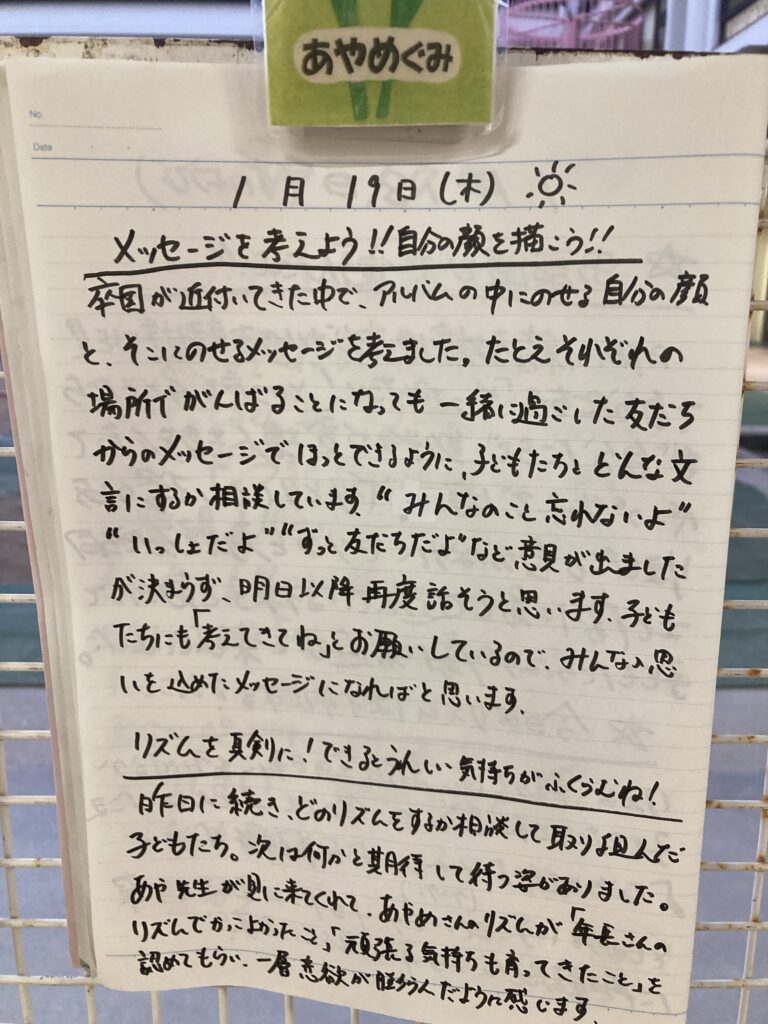 あやめぐみ
No.
Date
1月19日(木)
メッセージを考えよう!!自分の顔を描こう!!
卒園が近付いてきた中で、アルバムの中にのせる自分の顔
と、そこにのせるメッセージを考えました。たとえそれぞれの
場所でがんばることになっても一緒に過ごした友だち
からのメッセージでほっとできるように、子どもたちとどんな文
言にするか相談しています。“みんなのこと忘れないよ”
“いっしょだよ”“ずっと友だちだよ”など意見が出ました
が決まらず、明日以降再度話そうと思います。子ども
たちにも「考えてきてね」とお願いしているので、みんなの思
いを込めたメッセージになればと思います。
リズムを真剣に!できるとうれしい気持ちがふくらむね!
昨日に続き、どのリズムをするか相談して取り組んだ
子どもたち。次は何かと期待して待つ姿がありました。
あや先生が見に来てくれて、あやめさんのリズムが「年長さんの
リズムでかっこよかったこと」「頑張る気持ちも育ってきたこと」を
認めてもらい、一層意欲が膨らんだように感じます。